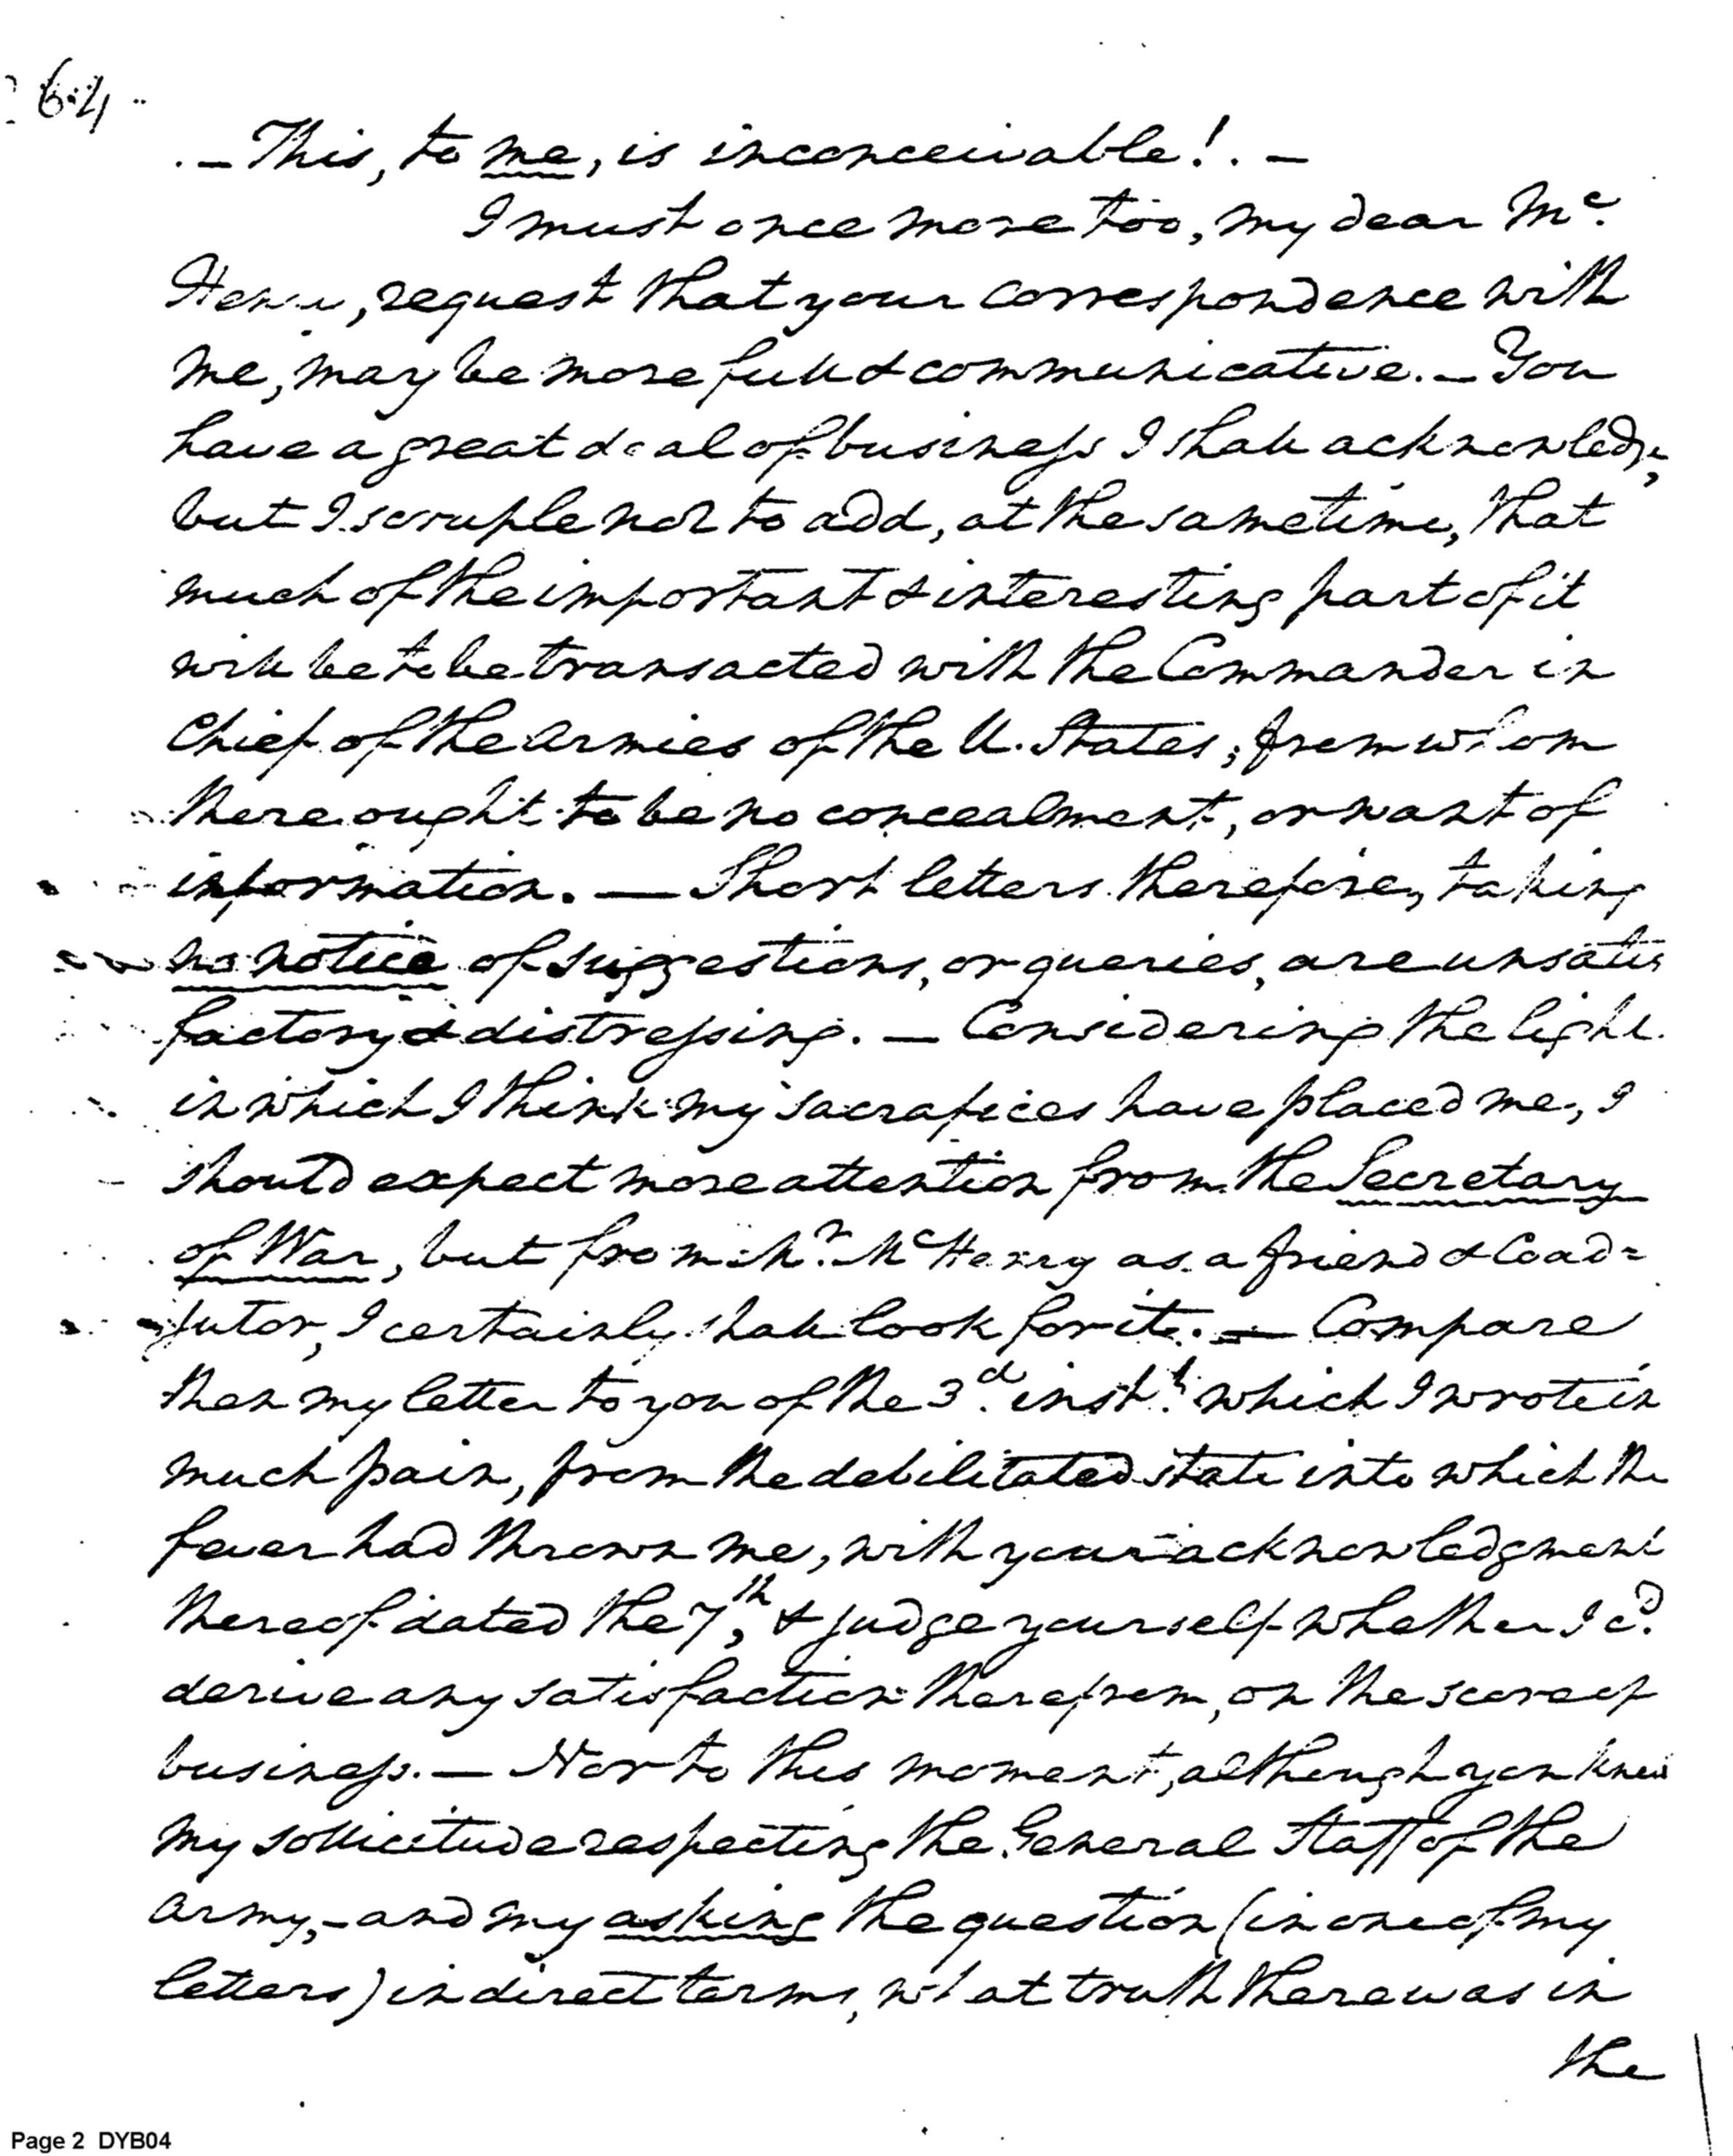 64
. – This, to me, is inconceivable! . –
I must once more too, my dear Mc.
Henry, request that your correspondence with
me, may be more full & communicative. – You
have a great deal of business I shall acknowledge,
but I scruple not to add, at the same time, that
much of the important & interesting part of it
will be to be transacted with the Commander in
Chief of the Armies of the U. States; from whom
there ought to be no concealment, or want of
information. — Short letters therefore, taking
no notice of suggestions, or queries, are unsatis
factory & distressing. – Considering the light
in which I think my sacrafices have placed me, I
should expect more attention from the Secretary
of War, but from Mr. McHenry as a friend & Coad=
jutor, I certainly shall look for it. — Compare
then my letter to you of the 3d. inst. which I wrote in
much pain, from the debilitated state into which the
fever had thrown me, with your acknowledgment
thereof dated the 7th, & judge yourself whether I cd.
derive any satisfaction therefrom, on the score of
business. — Nor to this moment, although you knew
my sollicitude respecting the General Staff of the
Army, – and my asking the question (in one of my
letters) in direct terms, what truth there was in
the
Page 2 DYB04